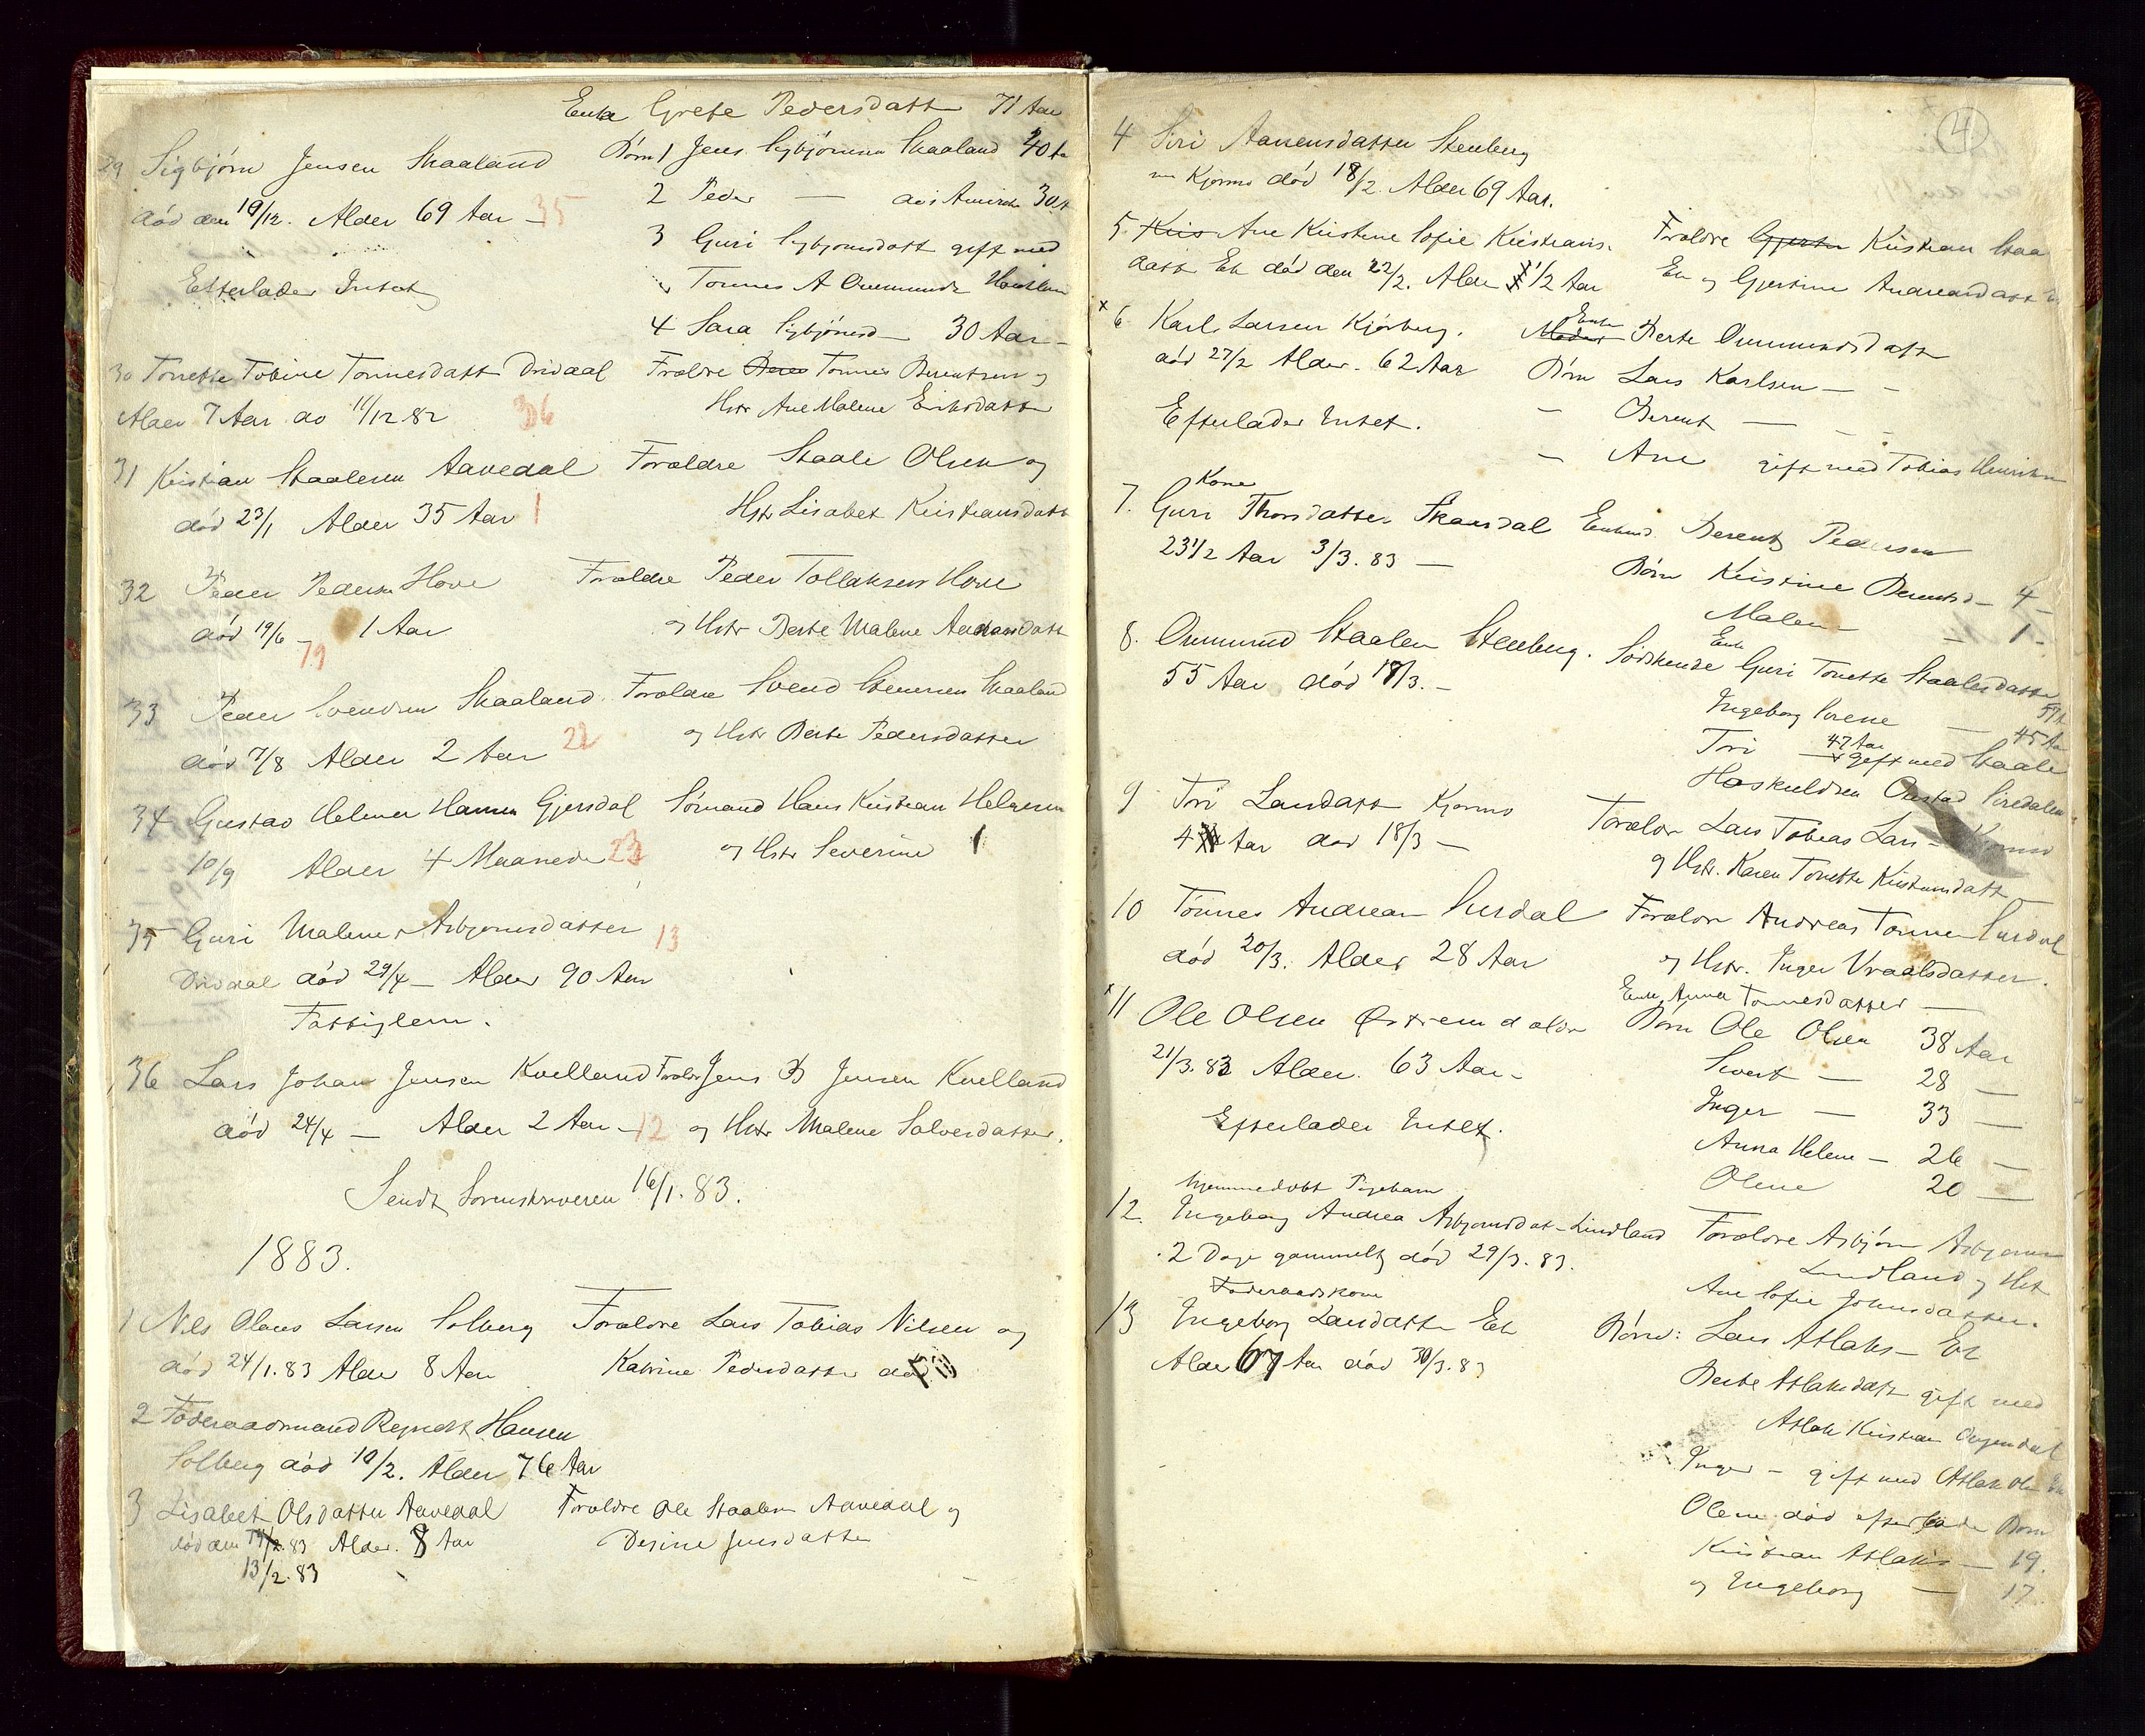 Enke Grete Pedersdatt 71 Aar
29 Sigbjørn Jensen Skaaland Børn 1 Jens Sigbjørnsen Skaaland 40 Aar
død den 19/12. Alder 69 Aar — 35
2 Peder — 30
3 Guri Sigbjørnsdatt gift med
Efterlader Intet
Tønnes A Ommunds
4 Sara Sigbjørnsd — 30 Aar —
30 Tonette Tobine Tønnesdatt Dridaal Forældre Tønnes Berentsen og
Alder 7 Aar dø 11/12 82 36 Hstr Ane Malene Eriksdatter
31 Kristian Staalesen Aavedal Forældre Staale Olsen og
død 23/1 Alder 35 Aar 1 Hstr Lisabet Kristiansdatt
32 Peder Pedersen Hove Forældre Peder Tollaksen Hove
død 19/6 — 1 Aar og Hstr Berte Malene
19
33 Peder Svendsen Skaaland Forældre Svend Skaaland
død 7/8 Alder 2 Aar 22 og Hstr Berte Pedersdatter
34 Gustav Helmer Hansen Gjersdal Sømand Hans Kristian Helmersen
10/9 Alder 4 Maaneder 23 og Hstr Severine 1
35 Guri Malene Asbjørnsdatter 13
Dridaal død 29/4 — Alder 90 Aar
Fattiglem.
36 Lars Johan Jensen Kvelland Forældr Jens B Jensen Kvelland
død 24/4 — Alder 2 Aar — 12 og Hstr Malene Salvesdatter.
Sendt Sorenskriveren 16/1. 83.
1883.
1 Nils Olaus Larsen Solberg Forældre Lars Tobias Nilsen og
død 24/1. 83 Alder 8 Aar Katrine Pedersdatter død
2 Føderaadsmand Reinert Hansen
Solberg død 10/2. Alder 76 Aar
3 Lisabet Olsdatter Aavedal Forældre Ole Staalesen Aavedal og
død den 14/2. 83 Alder. 8 Aar Desine Jensdatter
13/2. 83
4
4 Siri Aanensdatter Steeberg
Kjørmo død 18/2. Alder 69 Aar.
5. Kris Ane Kristine Sofie Kristians- Forældre Gjertin Kristian Staa
datt Eik død den 22/2. Alder 1/2 Aar Eik og Gjertine Andreasdatt
x 6 Karl Larsen Kjørberg. Moder Enke Berte Ommundsdatt
død 27/2 Alder. 62 Aar Børn Lars Karlsen — -
Efterlader Intet. - Berent — - -
- Ane gift med Tobias Henriksen
Kone
7. Guri Thorsdatter Skarsdal Enkmd. Berent Pedersen
23 1/2 Aar 3/3. 83 — Børn Kristine Berentsd — 4 -
Malene - 1 -
8. Ommund Staalesen Steeberg. Sødskende Enke Guri Tonette Staalesdatter
55 Aar død 18/3. - 57
Ingeborg Serene — 45 Aar
Tori 47 Aar gift med Staale
Haskuldsen Ørestad Siredalen
9 Tori Larsdatt Kjørmo Forældre Lars Tobias Lars- Kjørmo
4 Aar død 18/3 — og Hstr. Karen Tonette Kristensdatt
10 Tønnes Andreas Surdal Forældre Andreas Tønnesen Surdal
død 20/3. Alder 28 Aar og Hstr. Inger Vraalsdatter.
Enke, Anna Tønnesdatter —
x 11 Ole Olsen Østremdalen Børn Ole Olsen 38 Aar
21/3. 83 Alder. 63 Aar - Sivert — 28 —
Inger — 33 —
Efterlader Intet. Anna Helene — 26 —
Olene 20 —
hjemmedøbt Pigebarn
12. Ingeborg Andrea Asbjørnsdat - Lindland Forældre Asbjørn Asbjørnsen
2 Dage gammelt død 29/3. 83. Lindland og Hst
Ane Sofie Johnsdatter.
Føderaadskone
13 Ingeborg Larsdatter Eik Børn: Lars Atlaks- Eik
Alder 67 Aar død 30/3. 83 Berte Atlaksdatt gift med
Atlak Kristian
Inger - gift med Atlak Ols
Olene død efterlade Børn
Kristian Atlaks — 19.
og Ingeborg — 17.